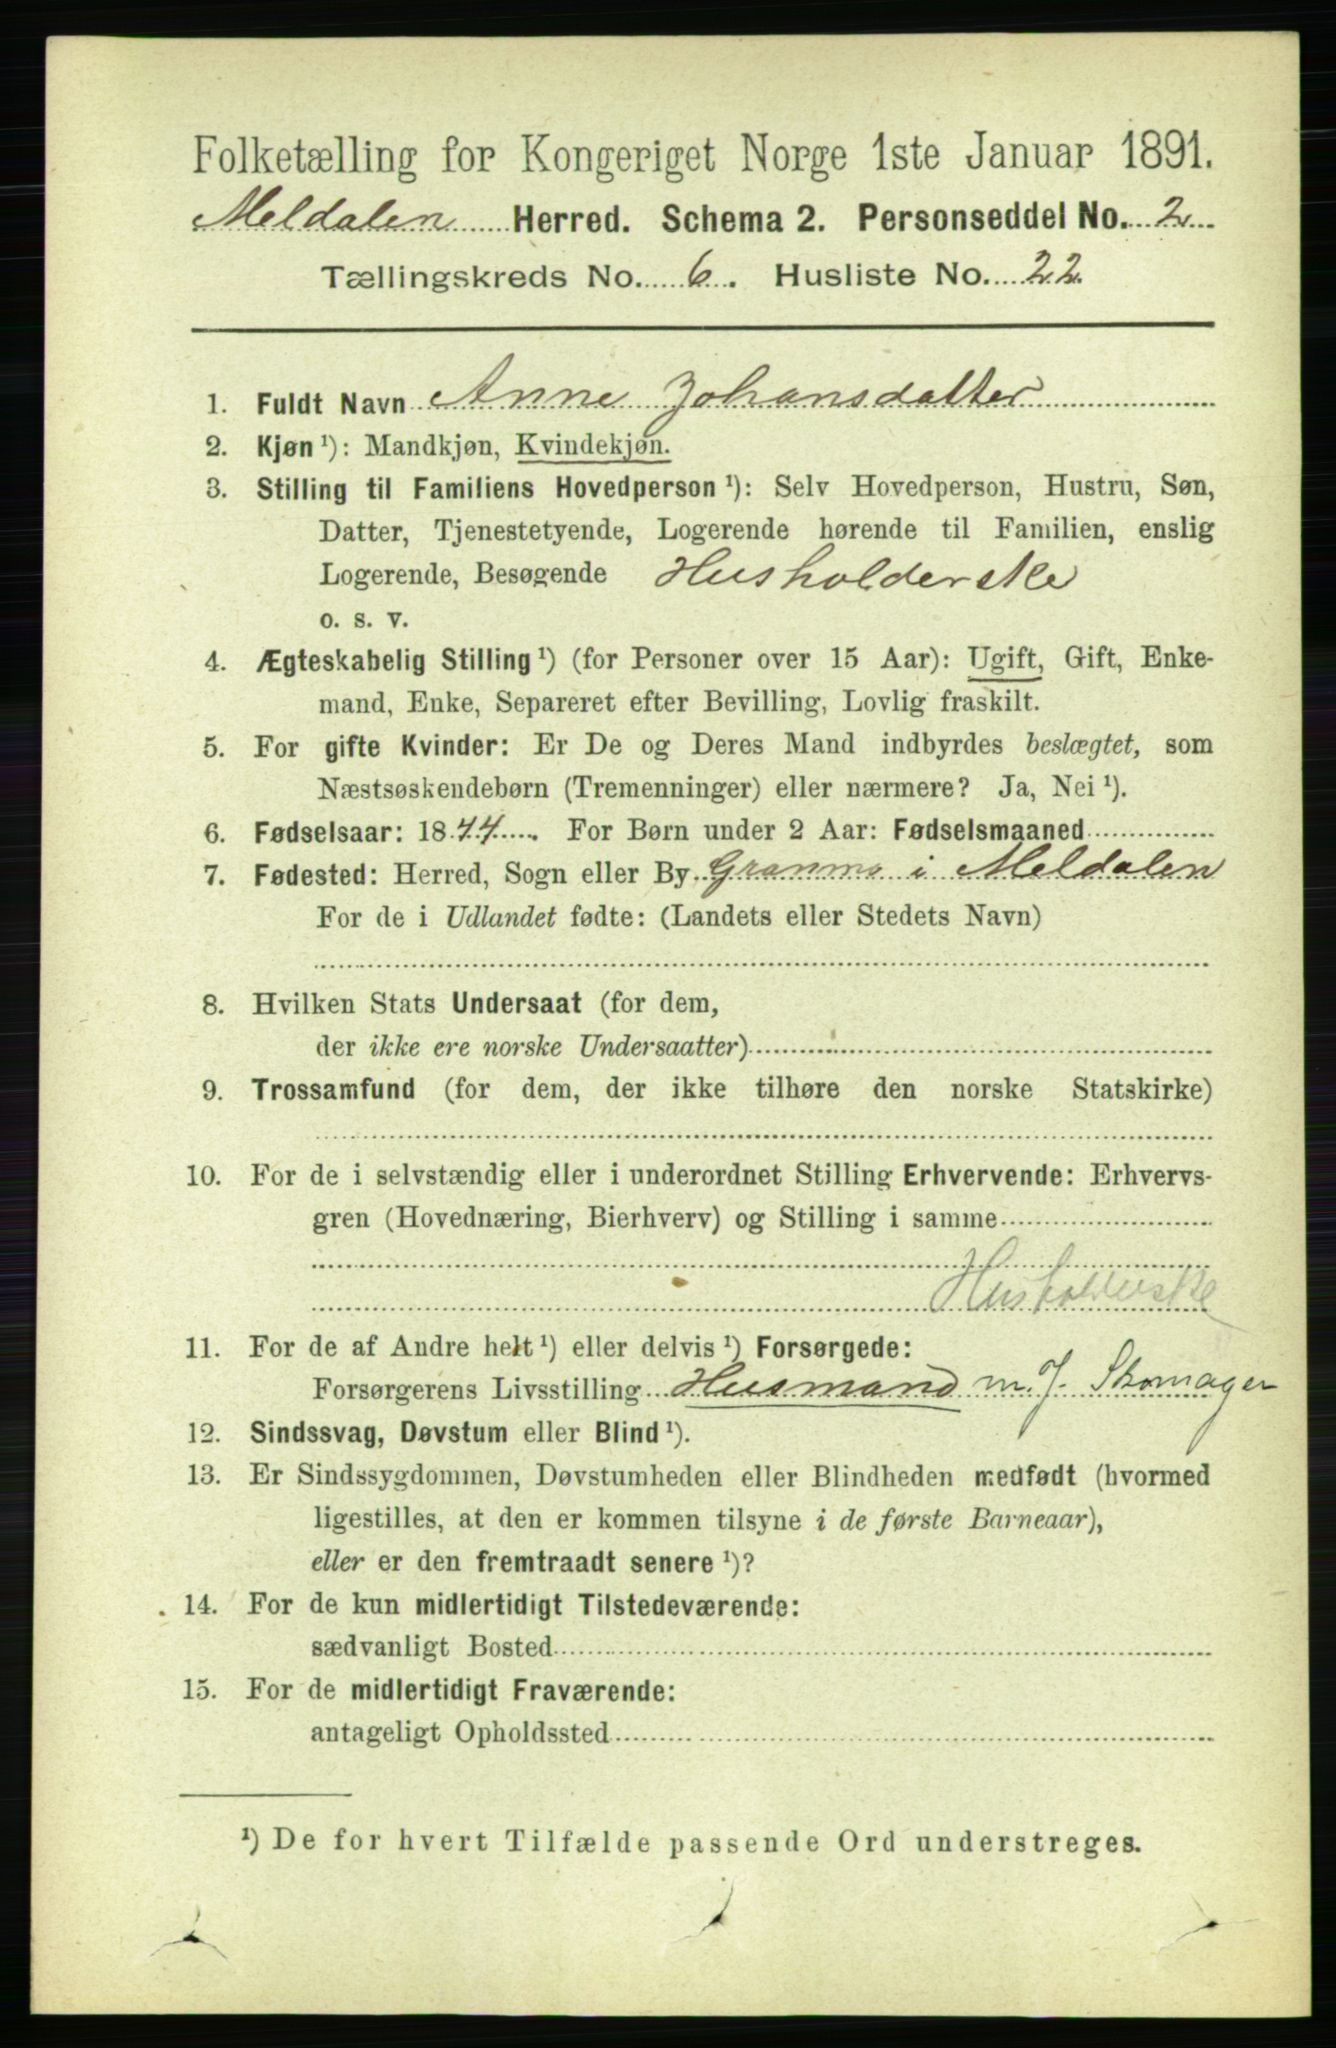 Folketælling for Kongeriget Norge 1ste Januar 1891.
Meldalen Herred. Schema 2. Personseddel No. 2
Tællingskreds No. 6. Husliste No. 22
1. Fuldt Navn Anne Johansdatter
2. Kjøn ¹): Mandkjøn, Kvindekjøn.
3. Stilling til Familiens Hovedperson ¹): Selv Hovedperson, Hustru, Søn,
Datter, Tjenestetyende, Logerende hørende til Familien, enslig
Logerende, Besøgende Husholderske
o. s. v.
4. Ægteskabelig Stilling ¹) (for Personer over 15 Aar): Ugift, Gift, Enke-
mand, Enke, Separeret efter Bevilling, Lovlig fraskilt.
5. For gifte Kvinder: Er De og Deres Mand indbyrdes beslægtet, som
Næstsøskendebørn (Tremenninger) eller nærmere? Ja, Nei ¹).
6. Fødselsaar: 1844. For Børn under 2 Aar: Fødselsmaaned
7. Fødested: Herred, Sogn eller By Granmo i Meldalen
For de i Udlandet fødte: (Landets eller Stedets Navn)
8. Hvilken Stats Undersaat (for dem,
der ikke ere norske Undersaatter)
9. Trossamfund (for dem, der ikke tilhøre den norske Statskirke)
10. For de i selvstændig eller i underordnet Stilling Erhvervende: Erhvervs-
gren (Hovednæring, Bierhverv) og Stilling i samme
Husholderske
11. For de af Andre helt ¹) eller delvis ¹) Forsørgede:
Forsørgerens Livsstilling Husmand m. J. Skomager
12. Sindssvag, Døvstum eller Blind ¹).
13. Er Sindssygdommen, Døvstumheden eller Blindheden medfødt (hvormed
ligestilles, at den er kommen tilsyne i de første Barneaar),
eller er den fremtraadt senere ¹)?
14. For de kun midlertidigt Tilstedeværende:
sædvanligt Bosted
15. For de midlertidigt Fraværende:
antageligt Opholdssted
¹) De for hvert Tilfælde passende Ord understreges.